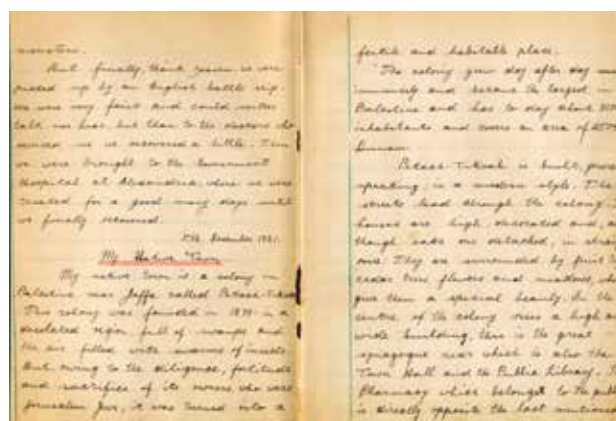 monsters.
But finally, thank heaven, we were
picked up by an English battle ship.
We were very faint and could neither
talk nor hear, but than to the doctors who
nursed us we recovered a little. Then
we were brought to the Government
Hospital at Alexandria, where we were
treated for a good many days until
we finally recovered.
December 1921.
My Native Town
My native town is a colony in
Palestine near Jaffa called Petach-Tikvah
This colony was founded in 1878 in a
desolated region full of swamps and
the air filled with swarms of insects.
But owing to the diligence, fortitude
and sacrifice of its owners, who were
Jerusalem Jews, it was turned into a
fertile and habitable place.
The colony grew day after day
immensely and became the largest in
Palestine and has to day about
inhabitants and covers an area of
Dunams.
Petach-Tikvah is built,
speaking, in a modern style. The
streets lead through the colony
houses are high, decorated and,
though each one detached, in
ones. They are surrounded by fruit
cedar trees flowers and meadows,
give them a special beauty. In the
centre of the colony rises a high and
wide building, this is the great
synagogue near which is also the
Town Hall and the Public Library.
Pharmacy which belongs to the
is directly opposite the last mentioned